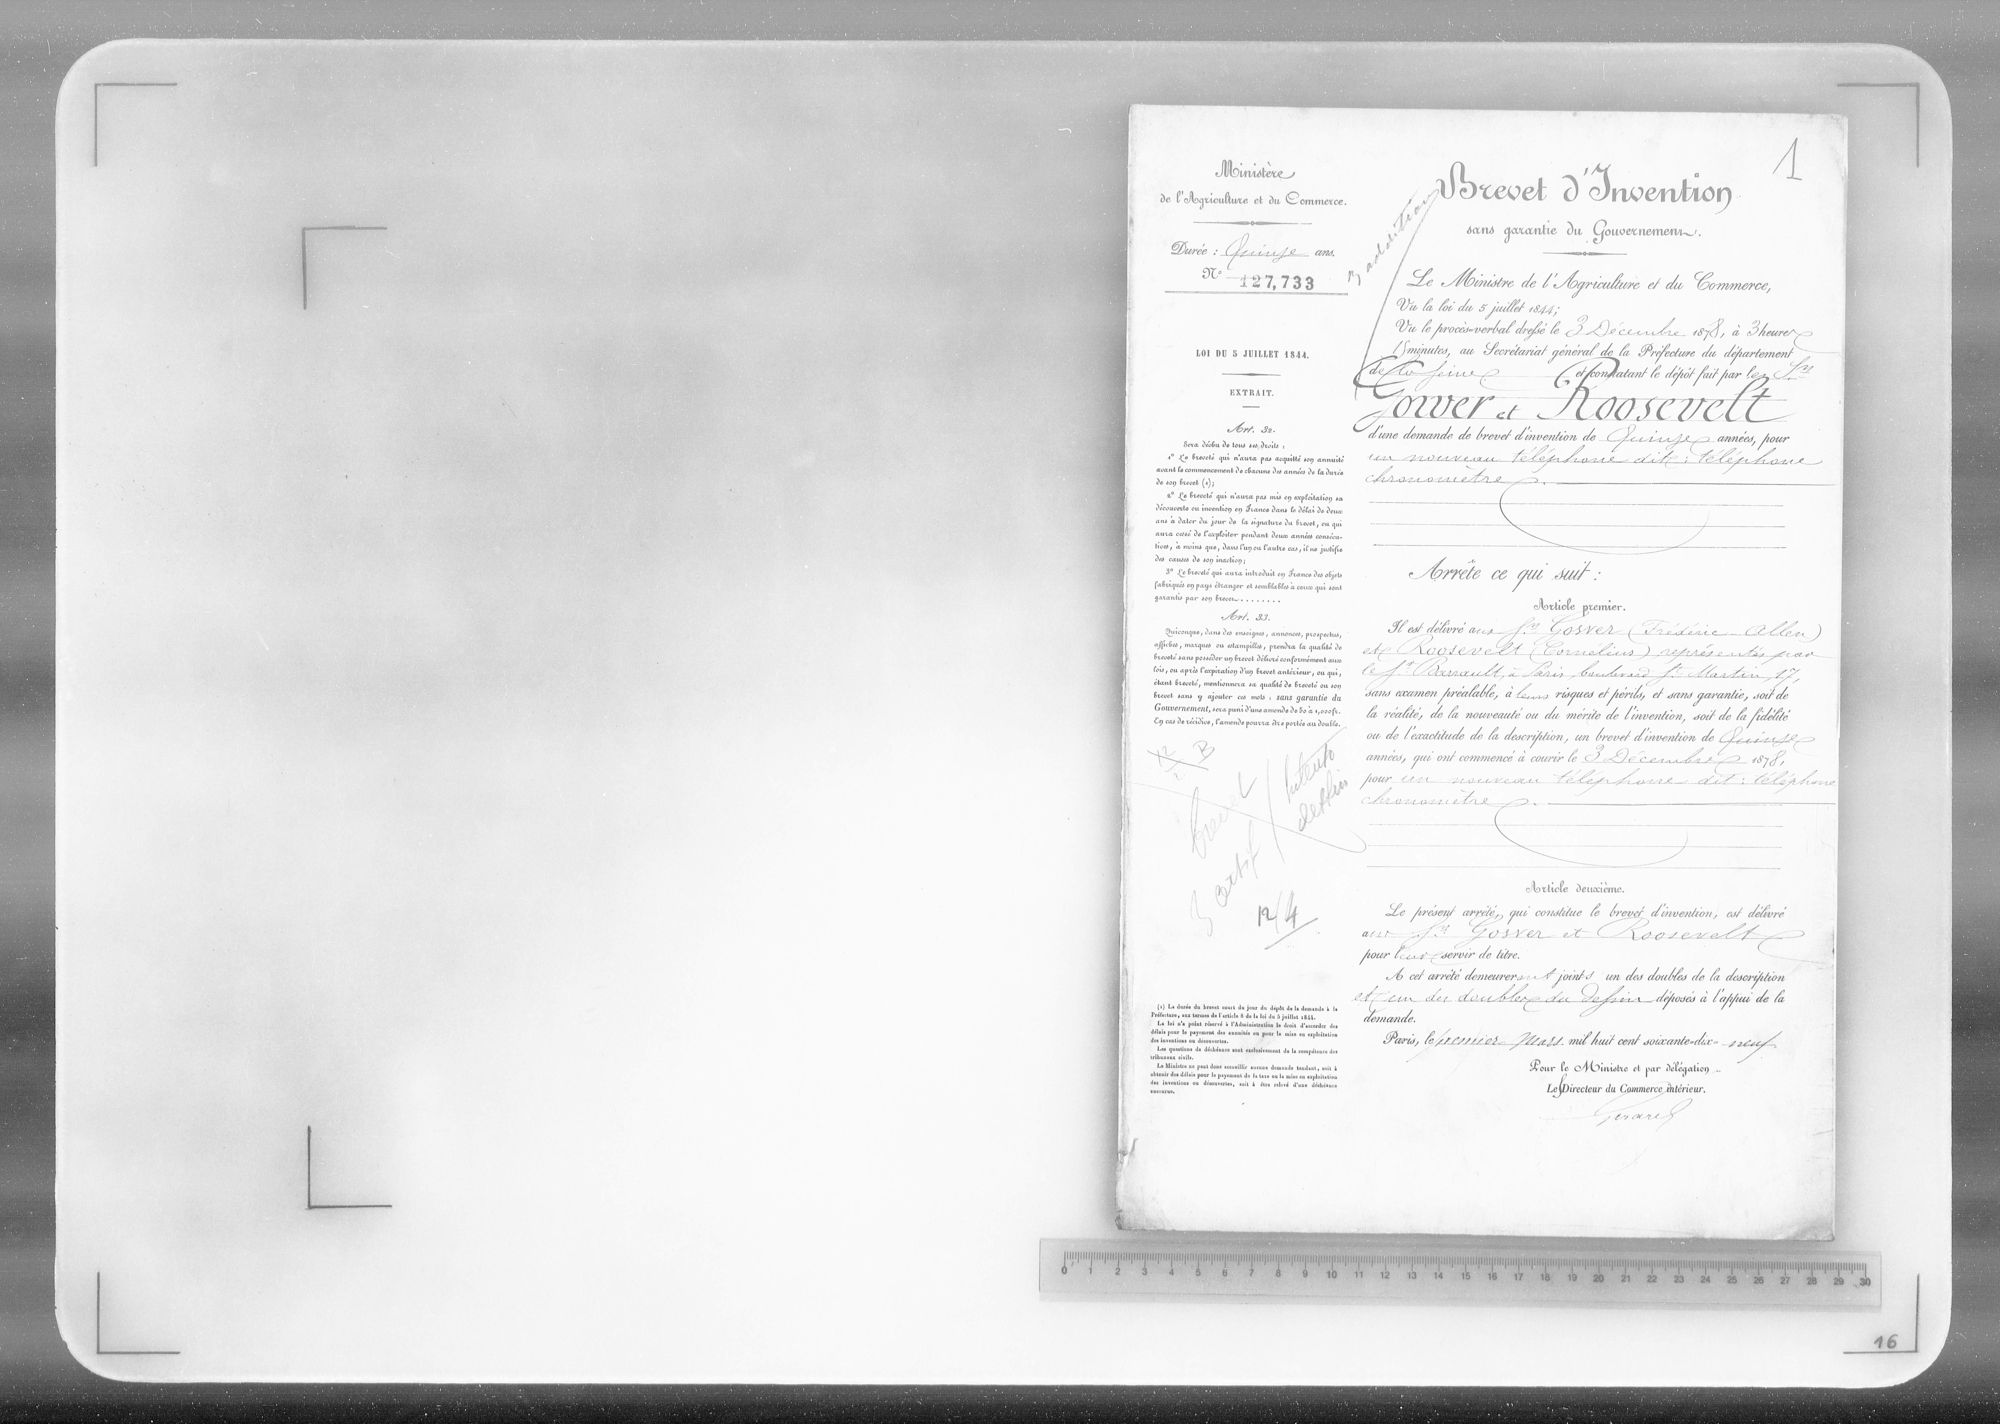 Ministère
de l'Agriculture et du Commerce.
Durée : Quinze ans.
N° 127,733
LOI DU 5 JUILLET 1844.
EXTRAIT.
Art. 32.
Sera déchu de tous ses droits :
1° Le breveté qui n'aura pas acquitté son annuité
avant le commencement de chacune des années de la durée
de son brevet (1);
2° Le breveté qui n'aura pas mis en exploitation sa
découverte ou invention en France dans le délai de deux
ans à dater du jour de la signature du brevet, ou qui
aura cessé de l'exploiter pendant deux années consécu-
tives, à moins que, dans l'un ou l'autre cas, il ne justifie
des causes de son inaction;
3° Le breveté qui aura introduit en France des objets
fabriqués en pays étranger et semblables à ceux qui sont
garantis par son brevet.........
Art. 33.
Quiconque, dans des enseignes, annonces, prospectus,
affiches, marques ou estampilles, prendra la qualité de
breveté sans posséder un brevet délivré conformément aux
lois, ou après l'expiration d'un brevet antérieur, ou qui,
étant breveté, mentionnera sa qualité de breveté ou son
brevet sans y ajouter ces mots : sans garantie du
Gouvernement, sera puni d'une amende de 50 à 1,000 fr.
En cas de récidive, l'amende pourra être portée au double.
B
brevet
3 certif
12/4
(1) La durée du brevet court du jour du dépôt de la demande à la
Préfecture, aux termes de l'article 8 de la loi du 5 juillet 1844.
La loi n'a point réservé à l'Administration le droit d'accorder des
délais pour le payement des annuités ou pour la mise en exploitation
des inventions ou découvertes.
Les questions de déchéance sont exclusivement de la compétence des
tribunaux civils.
Le Ministre ne peut donc accueillir aucune demande tendant, soit à
obtenir des délais pour le payement de la taxe ou la mise en exploitation
des inventions ou découvertes, soit à être relevé d'une déchéance
encourue.
1
3 addition
Brevet d'Invention
sans garantie du Gouvernement.
Le Ministre de l'Agriculture et du Commerce,
Vu la loi du 5 juillet 1844;
Vu le procès-verbal dressé le 3 Décembre 1878, à 3 heures
15 minutes, au Secrétariat général de la Préfecture du département
de la Seine et constatant le dépôt fait par les Srs
Gower et Roosevelt
d'une demande de brevet d'invention de Quinze années, pour
un nouveau téléphone dit : téléphone
chronomètre.
Arrête ce qui suit :
Article premier.
Il est délivré aux Srs Gower (Frédéric Allen)
et Roosevelt (Cornélius) représentés par
le Sr Barrault, à Paris, boulevard St Martin, 17,
sans examen préalable, à leurs risques et périls, et sans garantie, soit de
la réalité, de la nouveauté ou du mérite de l'invention, soit de la fidélité
ou de l'exactitude de la description, un brevet d'invention de Quinze
années, qui ont commencé à courir le 3 Décembre 1878,
pour un nouveau téléphone dit : téléphone
chronomètre.
Article deuxième.
Le présent arrêté, qui constitue le brevet d'invention, est délivré
aux Srs Gower et Roosevelt
pour leur servir de titre.
A cet arrêté demeureront joints un des doubles de la description
et un des doubles du dessin déposés à l'appui de la
demande.
Paris, le premier Mars mil huit cent soixante-dix-neuf
Pour le Ministre et par délégation
Le Directeur du Commerce intérieur.
0 1 2 3 4 5 6 7 8 9 10 11 12 13 14 15 16 17 18 19 20 21 22 23 24 25 26 27 28 29 30
16